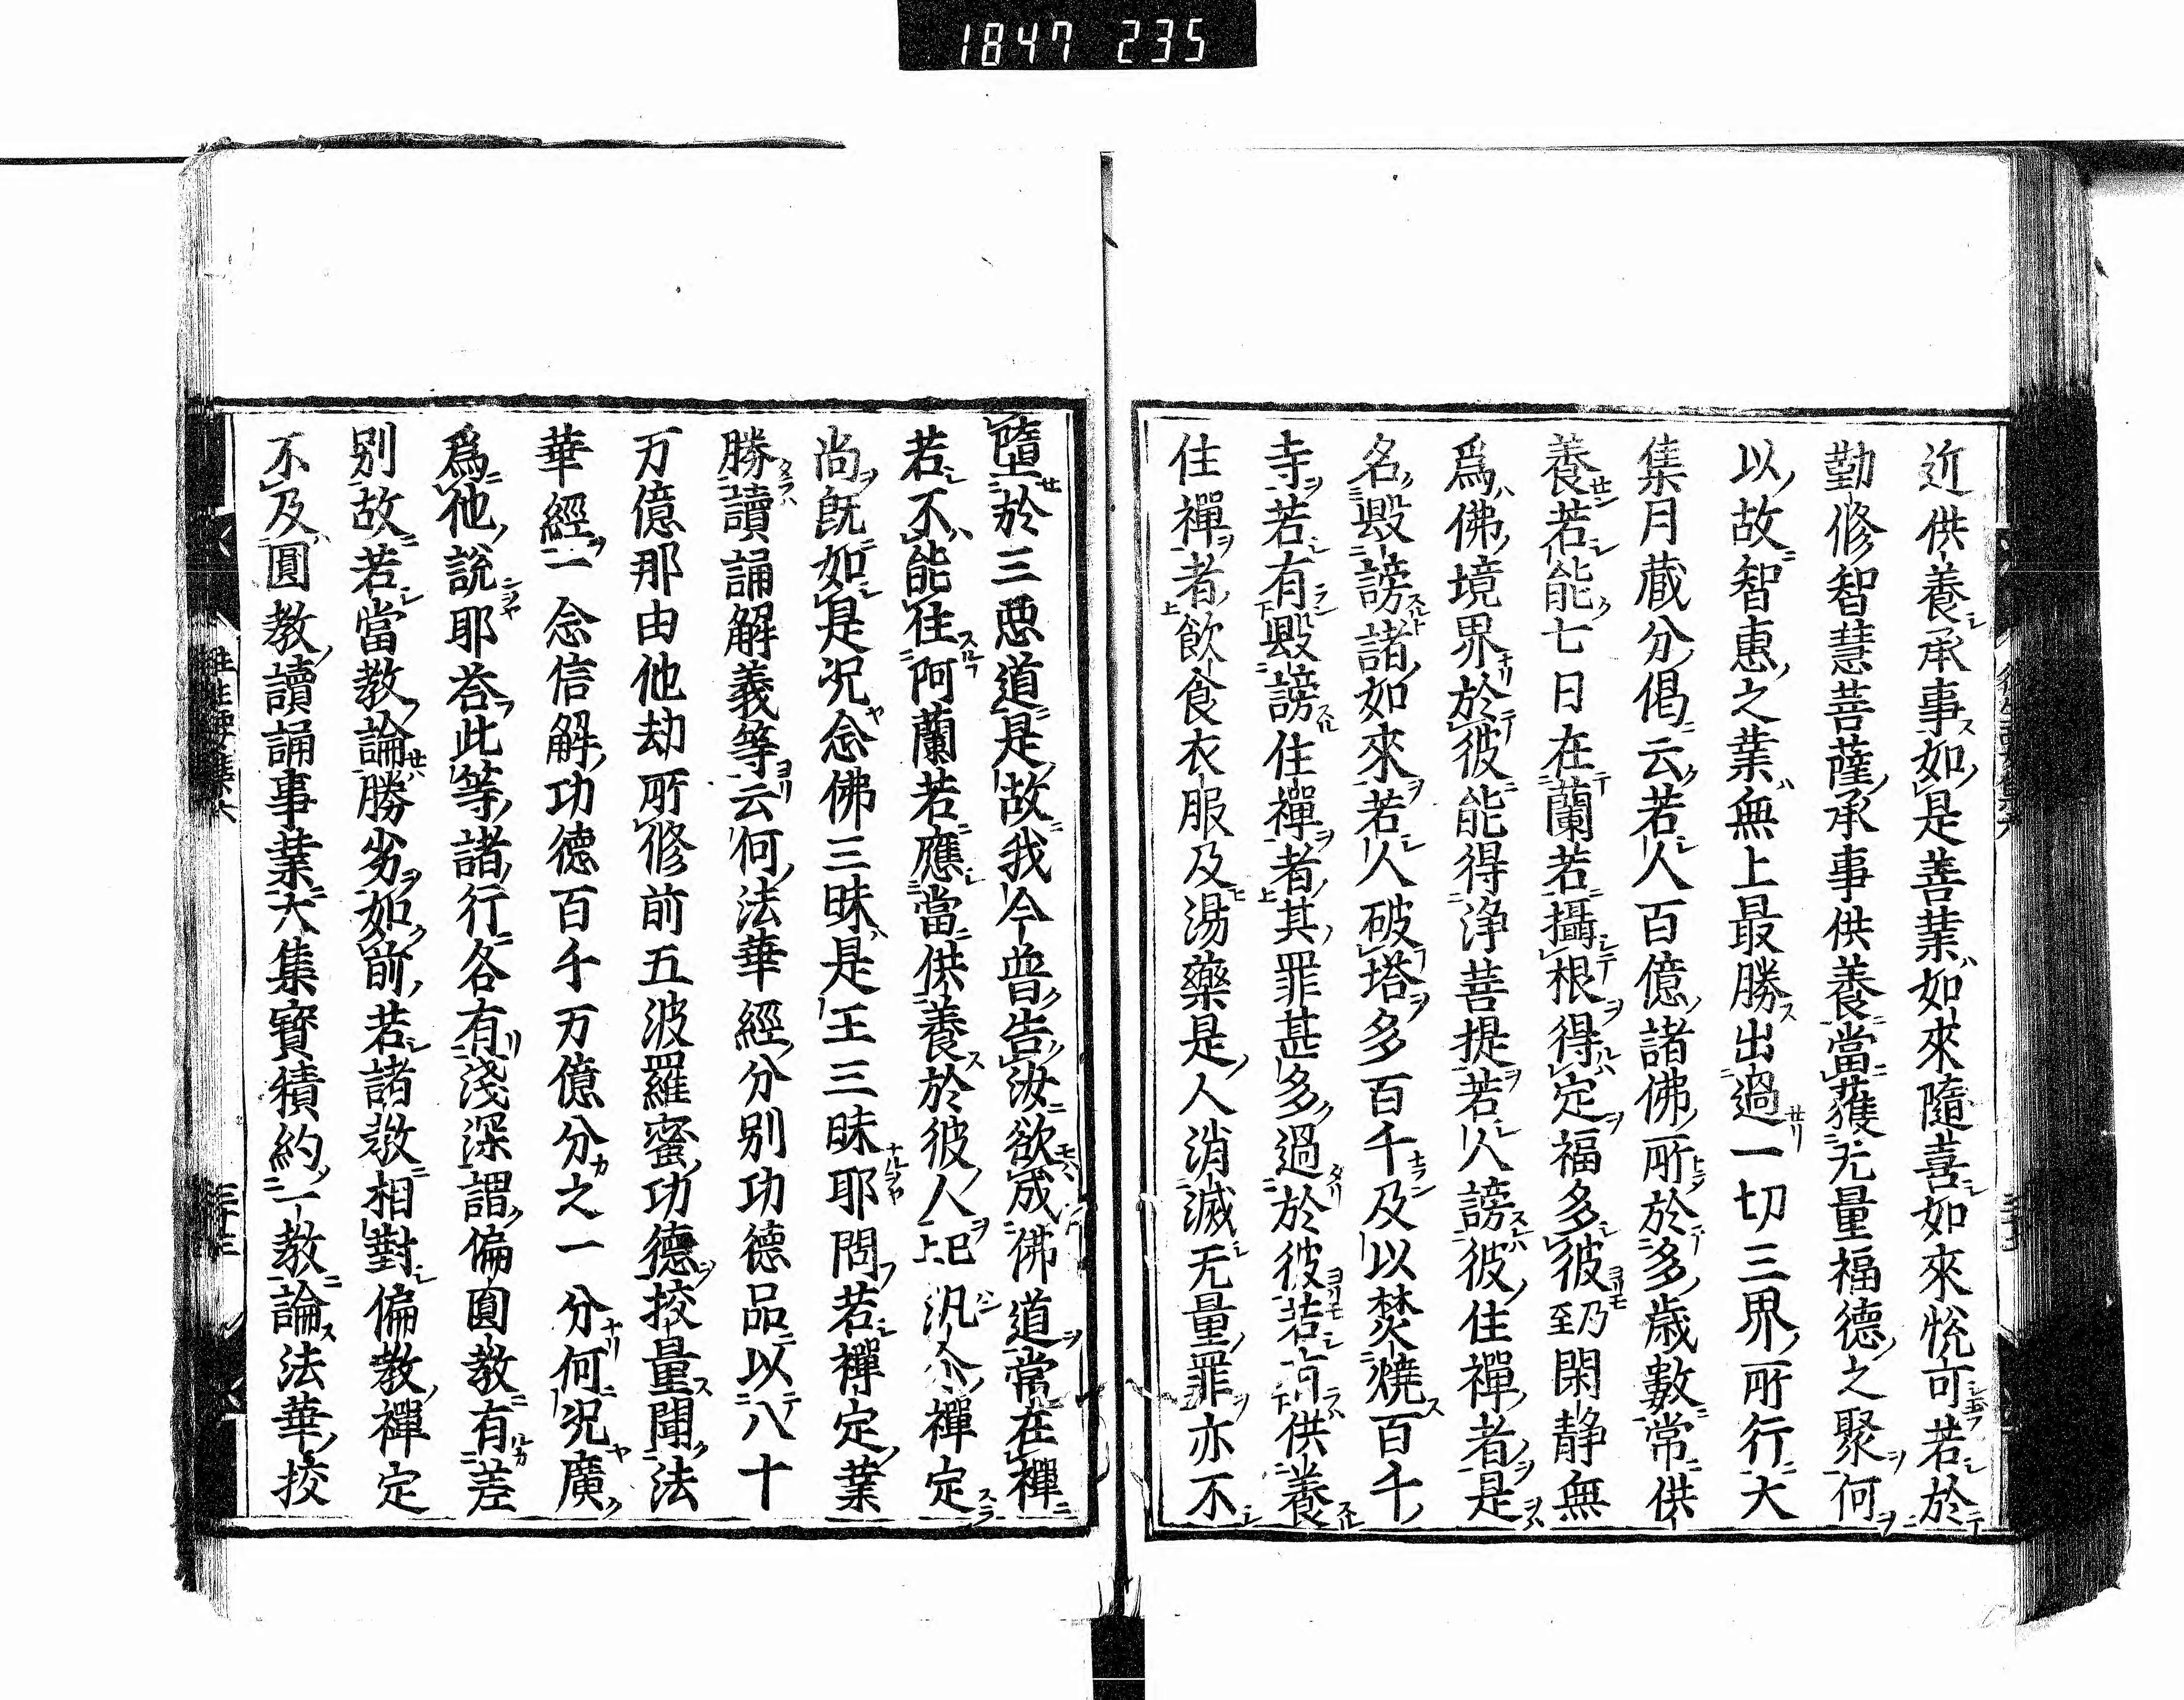 1847 235
近供養承事如是善業如來隨喜如來悅可若於
勤修智慧菩薩承事供養當獲无量福德之聚何
以故智惠之業無上最勝出過一切三界所行大
集月蔵分偈云若人百億諸佛所於多歳數常供
養若能七日在蘭若攝根得定福多彼乃至閑静無
爲佛境界於彼能得浄菩提若人謗彼住禪者是
名毀謗諸如來若人破塔多百千及以焚燒百千
寺若有毀謗住禪者其罪甚多過於彼若有供養
住禪者飲食衣服及湯藥是人消滅无量罪亦不
墮於三惡道是故我今普告汝欲成佛道常在禪
若不能住阿蘭若應當供養於彼人已上汎尒禪定
尚既如是况念佛三昧是王三昧耶問若禪定業
勝讀誦解義等云何法華經分别功德品以八十
万億那由他劫所修前五波羅蜜功德挍量聞法
華經一念信解功德百千万億分之一分何况廣
爲他説耶荅此等諸行各有淺深謂偏圓教有差
别故若當教論勝劣如前若諸教相對偏教禪定
不及圓教讀誦事業大集寳積約一教論法華挍